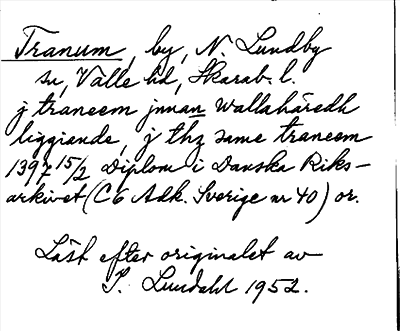 Tranum, by, N. Lundby
sn, Valle hd, Skarab. l.
j traneem jnnan Wallahäredh
liggiande, j thz same traneem
1397 15/2 Diplom i Danska Riks-
arkivet (C6 Adk. Sverige nr 40) or.
Läst efter originalet av
I. Lundahl 1952.